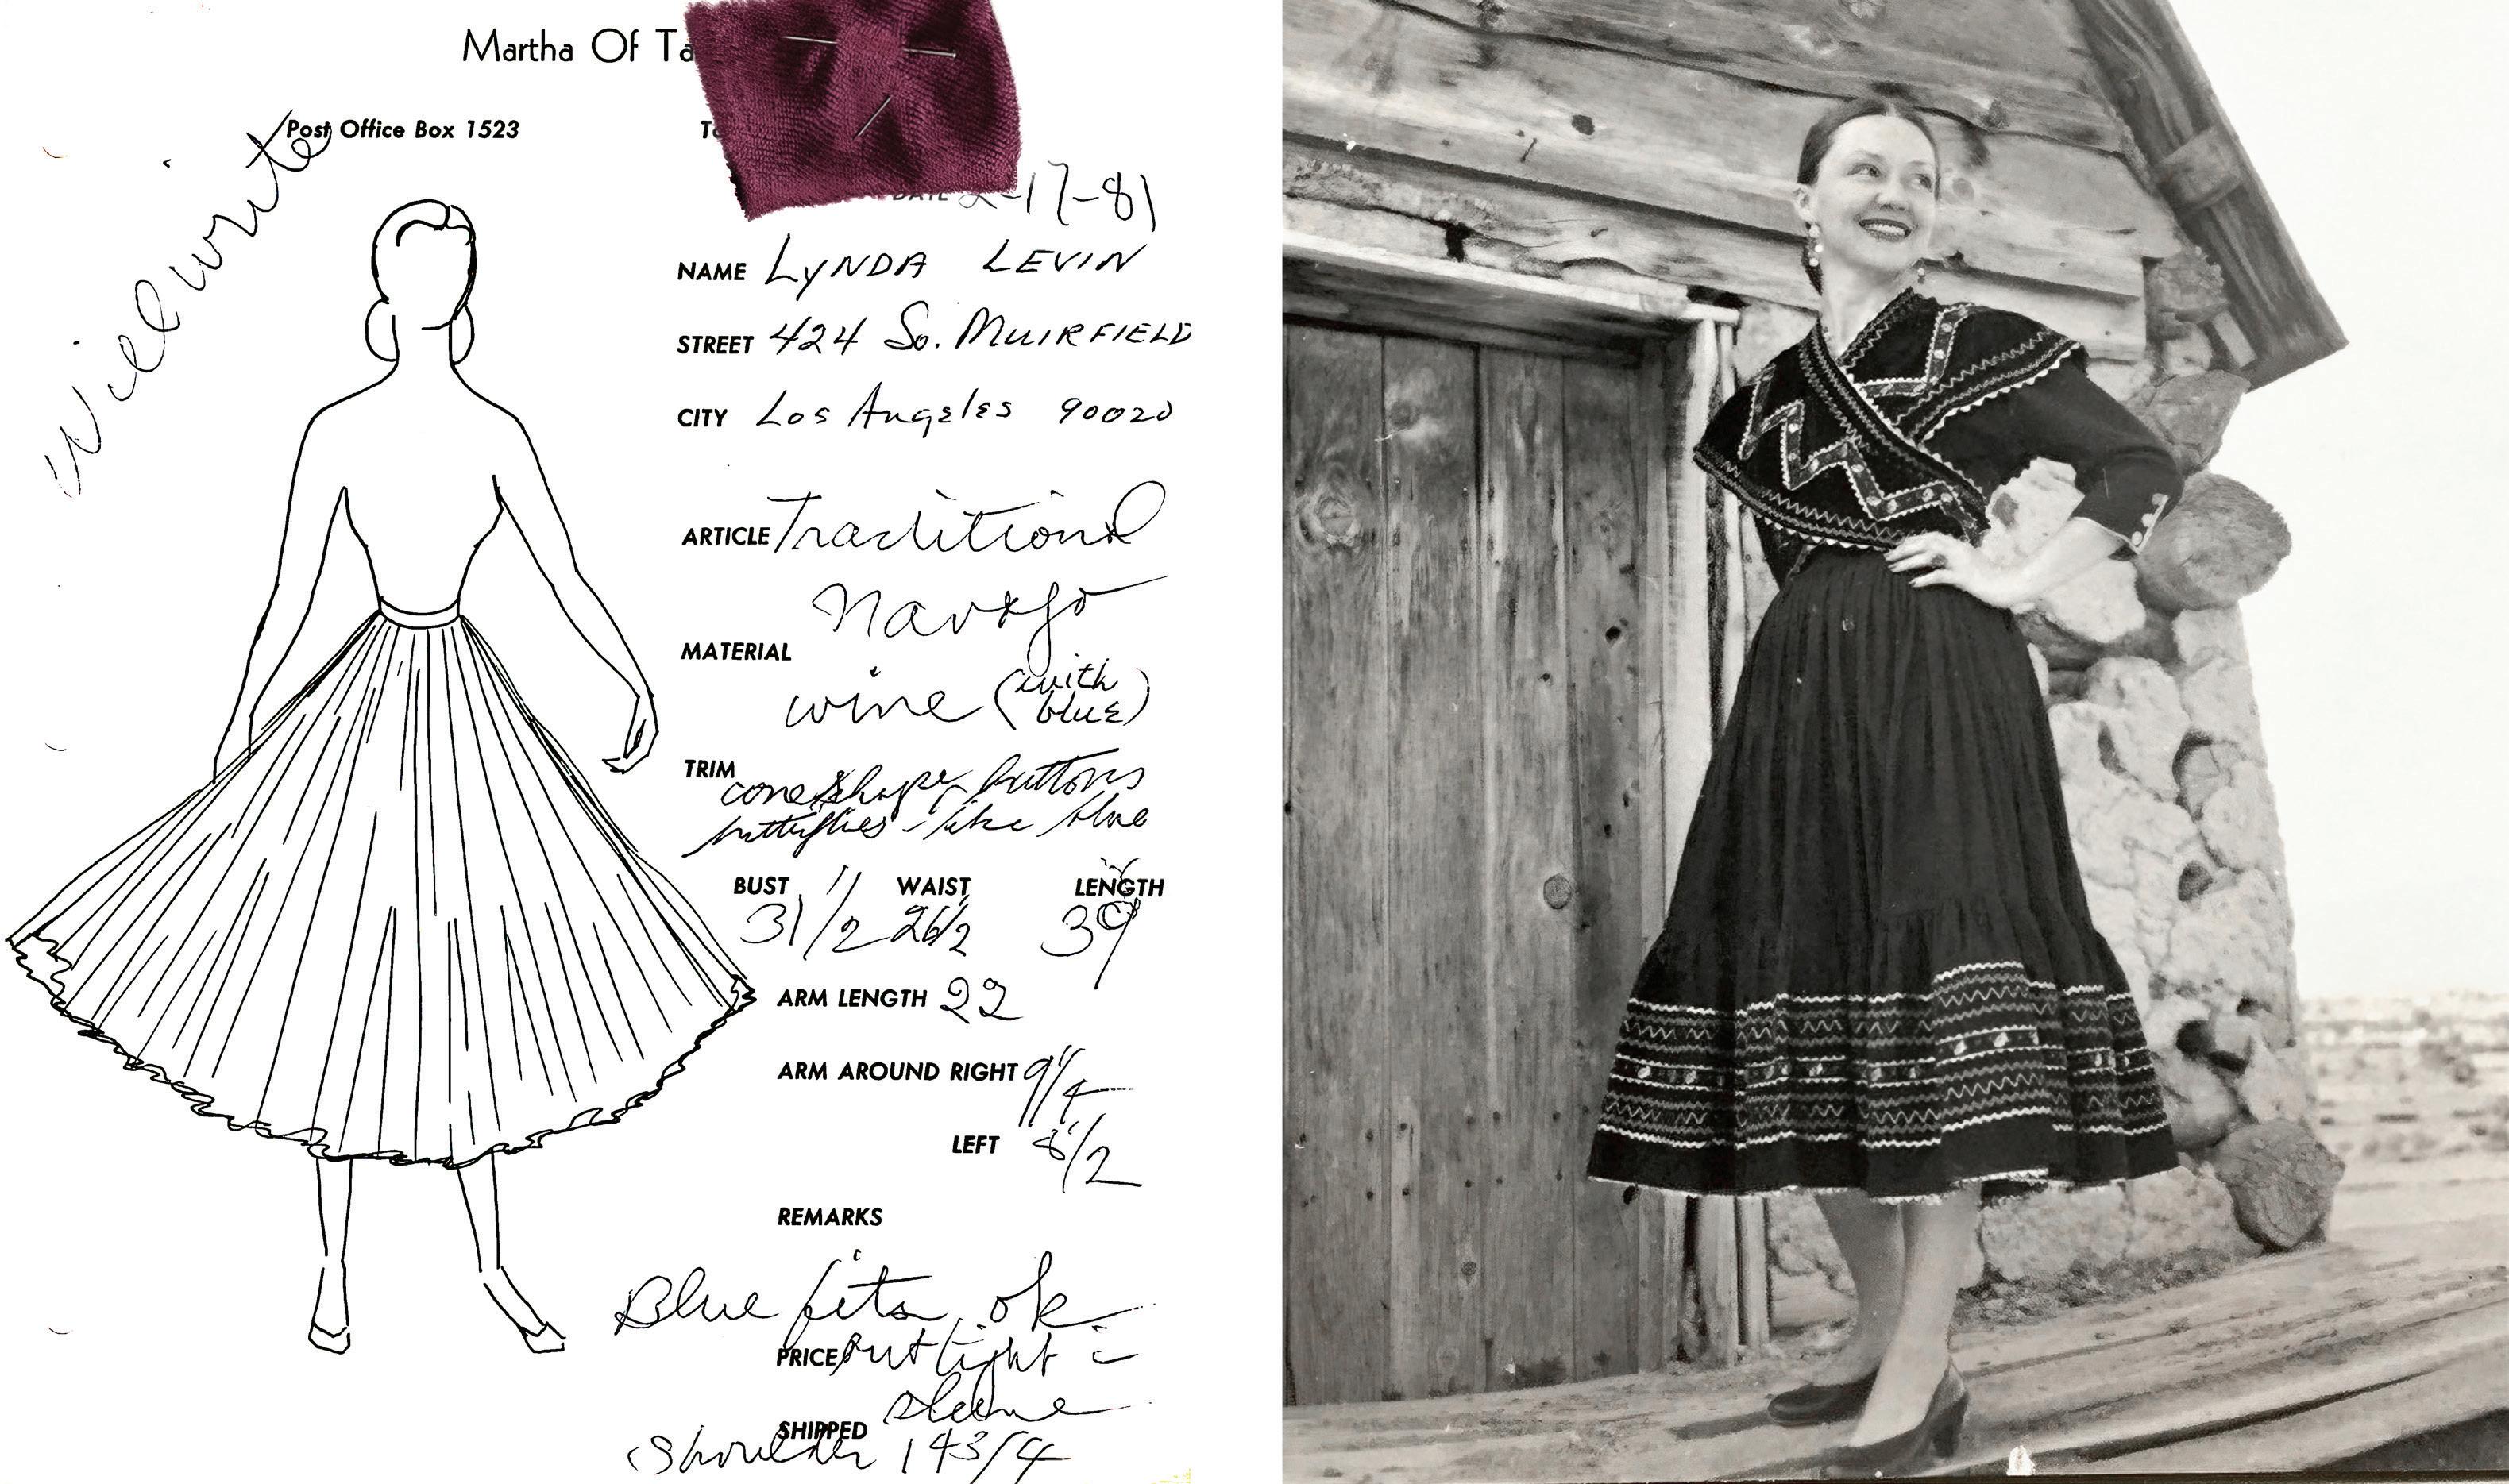 Martha Of Ta
Post Office Box 1523
Will write
DATE 2-17-81
NAME LYNDA LEVIN
STREET 424 So. MUIRFIELD
CITY Los Angeles 90020
ARTICLE Traditional
Navajo
MATERIAL
wine (with blue)
TRIM
cone shape buttons
butterflies - like blue
BUST WAIST LENGTH
31 1/2 26 1/2 39
ARM LENGTH 22
ARM AROUND RIGHT 9 1/4
LEFT 8 1/2
REMARKS
Blue fits ok
PRICE but tight in
sleeve
SHIPPED
Shoulder 14 3/4